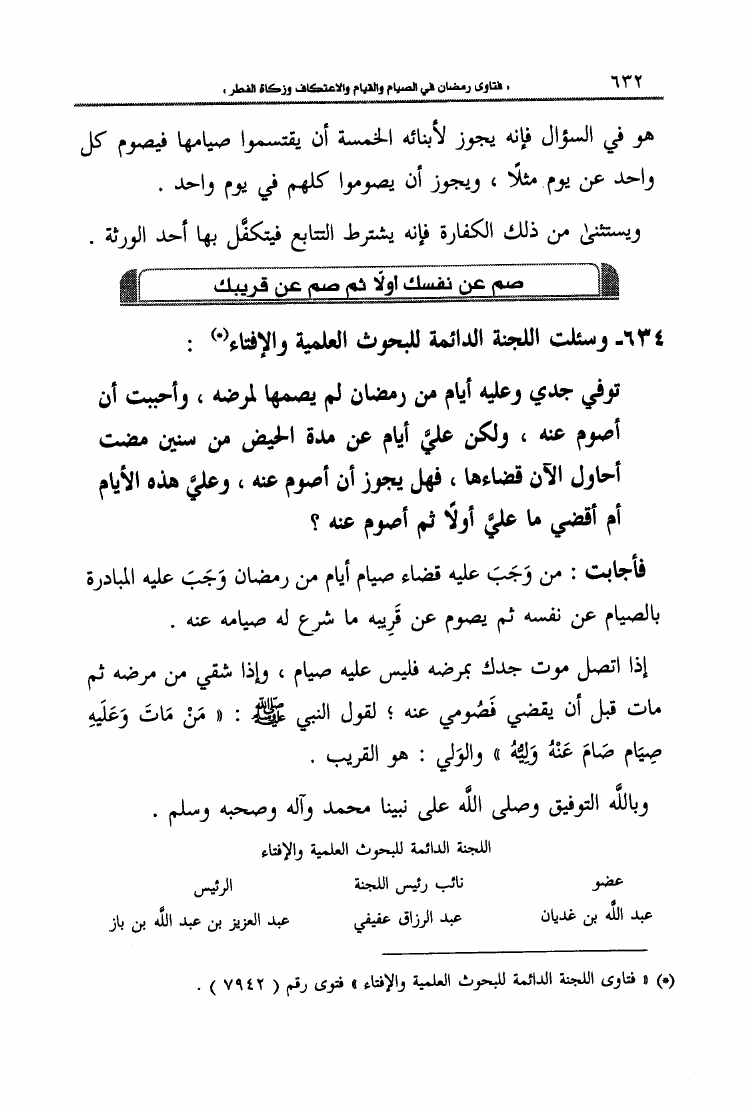 ٦٣٢ « فتاوى رمضان في الصيام والقيام والاعتكاف وزكاة الفطر »
هو في السؤال فإنه يجوز لأبنائه الخمسة أن يقتسموا صيامها فيصوم كل
واحد عن يوم مثلًا ، ويجوز أن يصوموا كلهم في يوم واحد .
ويستثنىٰ من ذلك الكفارة فإنه يشترط التتابع فيتكفَّل بها أحد الورثة .
صم عن نفسك أولًا ثم صم عن قريبك
٦٣٤ـ وسئلت اللجنة الدائمة للبحوث العلمية والإفتاء(*) :
توفي جدي وعليه أيام من رمضان لم يصمها لمرضه ، وأحببت أن
أصوم عنه ، ولكن عليَّ أيام عن مدة الحيض من سنين مضت
أحاول الآن قضاءها ، فهل يجوز أن أصوم عنه ، وعليَّ هذه الأيام
أم أقضي ما عليَّ أولًا ثم أصوم عنه ؟
فأجابت : من وَجَبَ عليه قضاء صيام أيام من رمضان وَجَبَ عليه المبادرة
بالصيام عن نفسه ثم يصوم عن قَرِيبه ما شرع له صيامه عنه .
إذا اتصل موت جدك بمرضه فليس عليه صيام ، وإذا شفي من مرضه ثم
مات قبل أن يقضي فَصُومي عنه ؛ لقول النبي ﷺ : « مَنْ مَاتَ وَعَلَيهِ
صِيَام صَامَ عَنْهُ وَلِيُّهُ » والوَلي : هو القريب .
وباللَّه التوفيق وصلى اللَّه على نبينا محمد وآله وصحبه وسلم .
اللجنة الدائمة للبحوث العلمية والإفتاء
عضو نائب رئيس اللجنة الرئيس
عبد اللَّه بن غديان عبد الرزاق عفيفي عبد العزيز بن عبد اللَّه بن باز
(*) « فتاوى اللجنة الدائمة للبحوث العلمية والإفتاء » فتوى رقم ( ٧٩٤٢ ) .